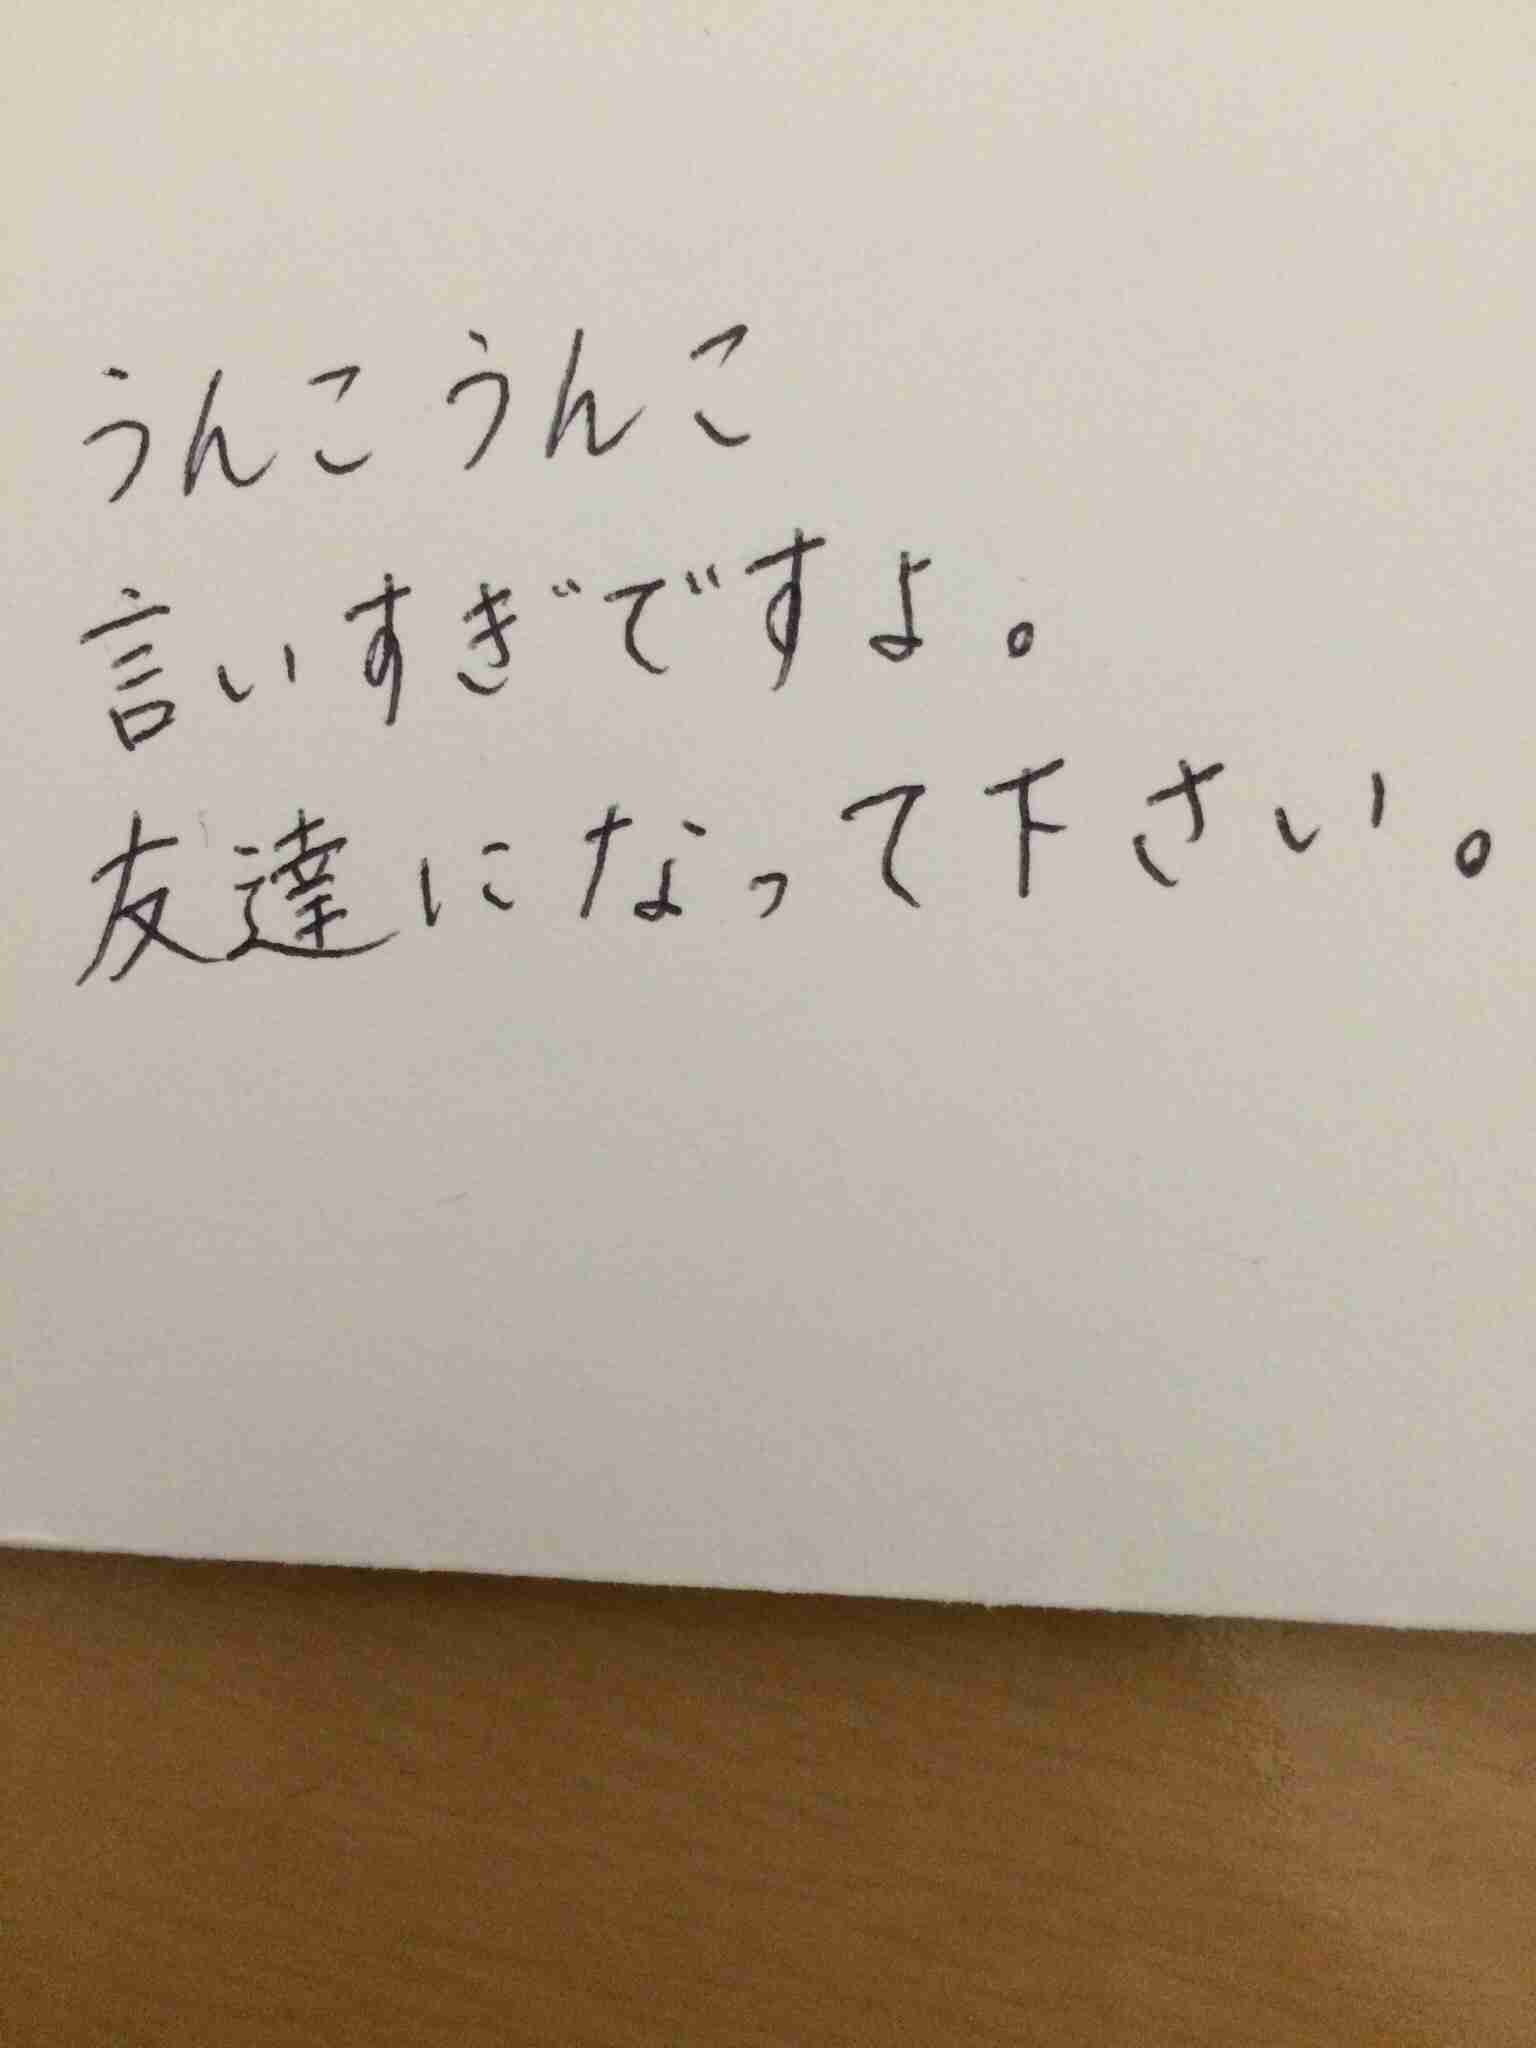 うんこうんこ
言いすぎですよ。
友達になって下さい。